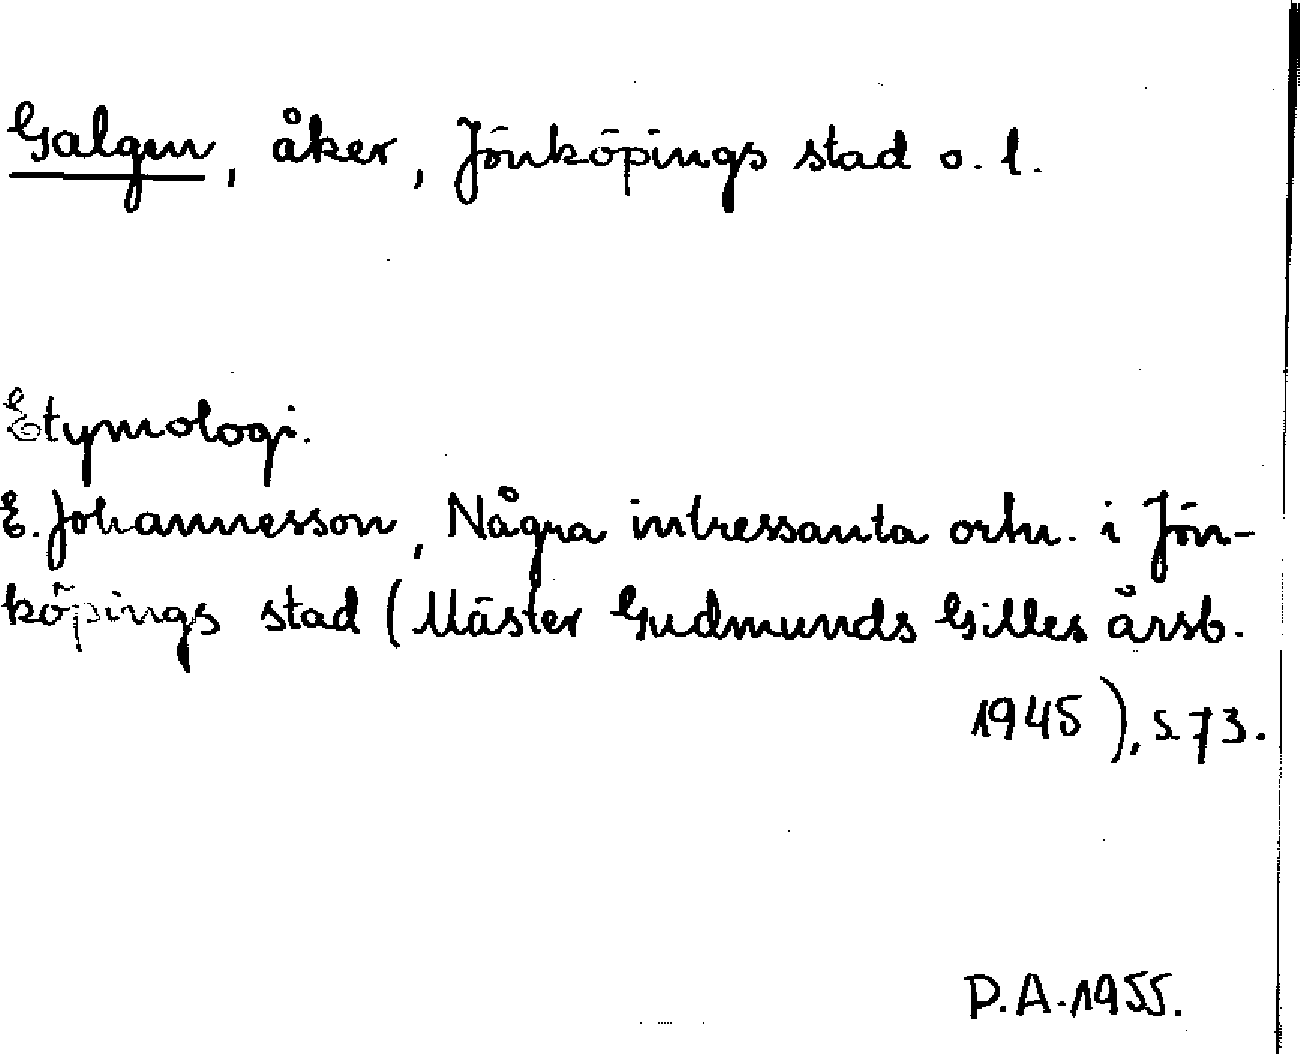 Galgen, åker, Jönköpings stad o. l.
Etymologi.
E. Johannesson, Några intressanta ortn. i Jön-
köpings stad (Mäster Gudmunds Gilles årsb.
1945), s. 73.
P.A. 1955.